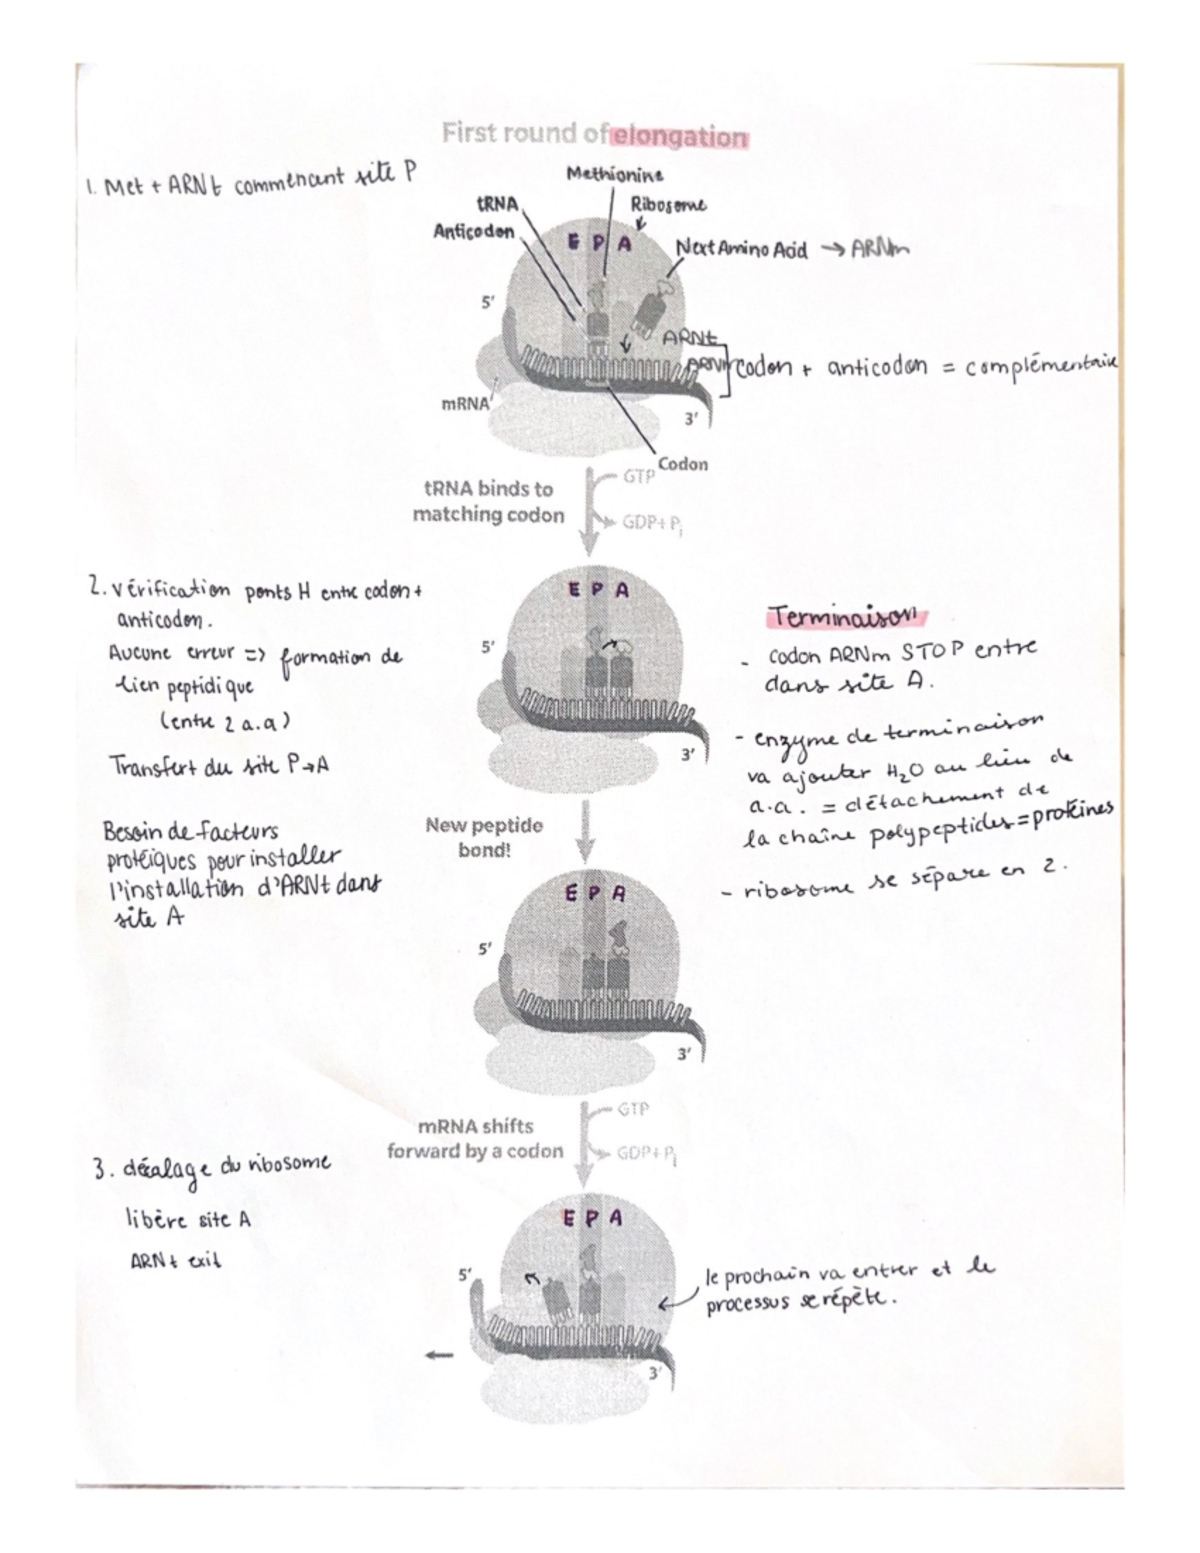 First round of elongation
1. Met + ARNt commencant site P
Methionine
tRNA
Ribosome
Anticodon
E P A
Next Amino Acid → ARNm
5'
ARNt
ARNm
codon + anticodon = complémentaire
mRNA
3'
Codon
GTP
tRNA binds to
matching codon
GDP+Pi
2. vérification ponts H entre codon +
anticodon.
Aucune erreur => formation de
lien peptidique
(entre 2 a.a)
Transfert du site P→A
Besoin de facteurs
protéiques pour installer
l'installation d'ARNt dans
site A
E P A
5'
3'
Terminaison
- codon ARNm STOP entre
dans site A.
- enzyme de terminaison
va ajouter H2O au lieu de
a.a. = détachement de
la chaîne polypeptides=protéines
- ribosome se sépare en 2.
New peptide
bond!
E P A
5'
3'
GTP
mRNA shifts
forward by a codon
GDP+Pi
3. décalage du ribosome
libère site A
ARNt exit
E P A
5'
le prochain va entrer et le
processus se répète.
←
3'